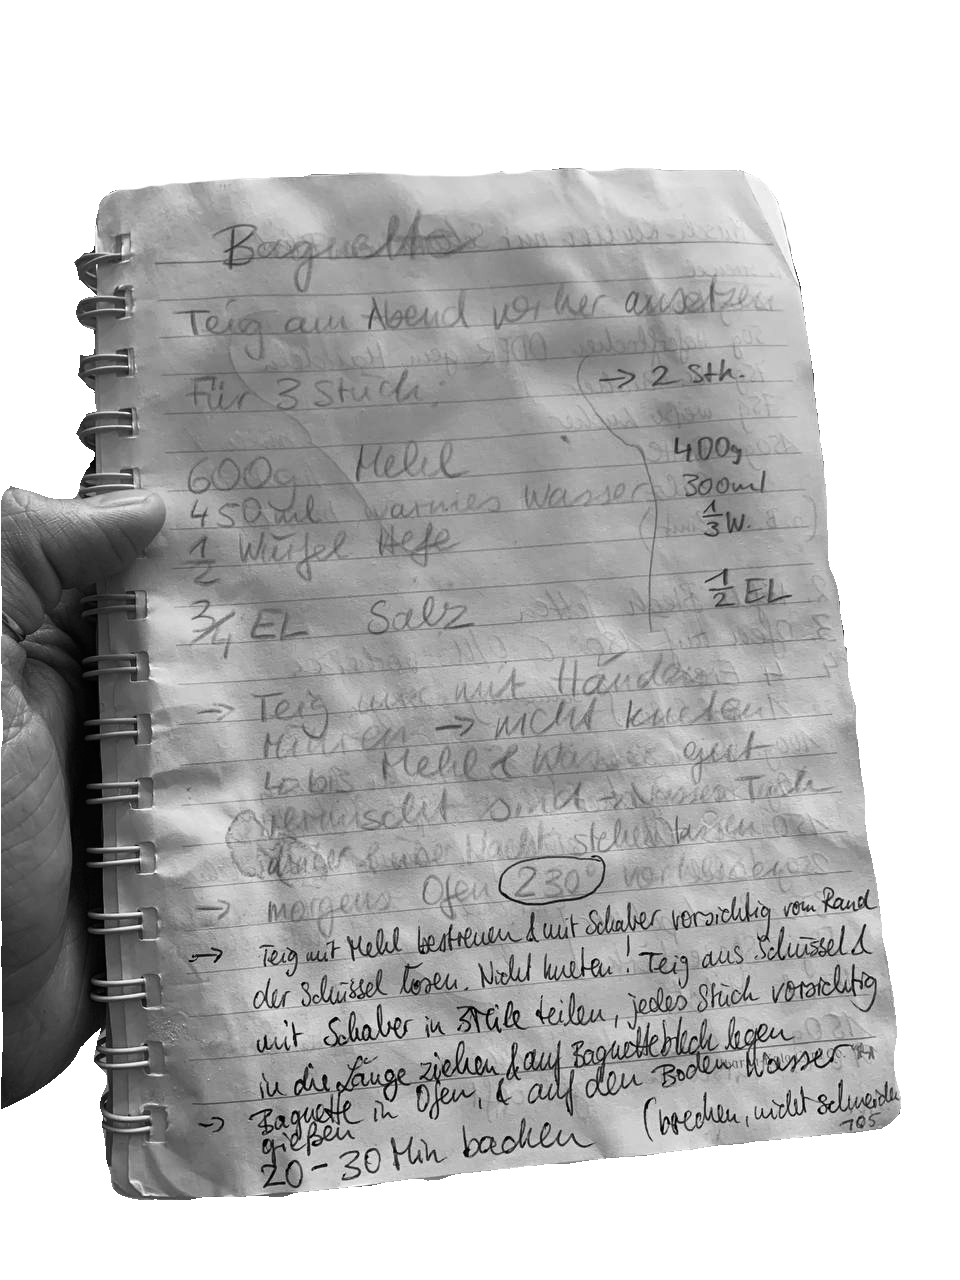 Baguettes
Teig am Abend vorher ansetzen
Für 3 Stück: → 2 Stk.
600g Mehl 400g
450ml warmes Wasser 300ml
1/2 Würfel Hefe 1/3 W.
3/4 EL Salz 1/2 EL
→ Teig nur mit Händen
rühren → nicht kneten!
bis Mehl & Wasser gut
vermischt sind → Nasses Tuch
drüber & über Nacht stehen lassen
→ morgens Ofen 230° vorheizen
→ Teig mit Mehl bestreuen & mit Schaber vorsichtig vom Rand
der Schüssel lösen. Nicht kneten! Teig aus Schüssel &
mit Schaber in 3 Teile teilen, jedes Stück vorsichtig
in die Länge ziehen & auf Baguetteblech legen
→ Baguette in Ofen, & auf den Boden Wasser
gießen
20-30 Min backen (brechen, nicht schneiden
105